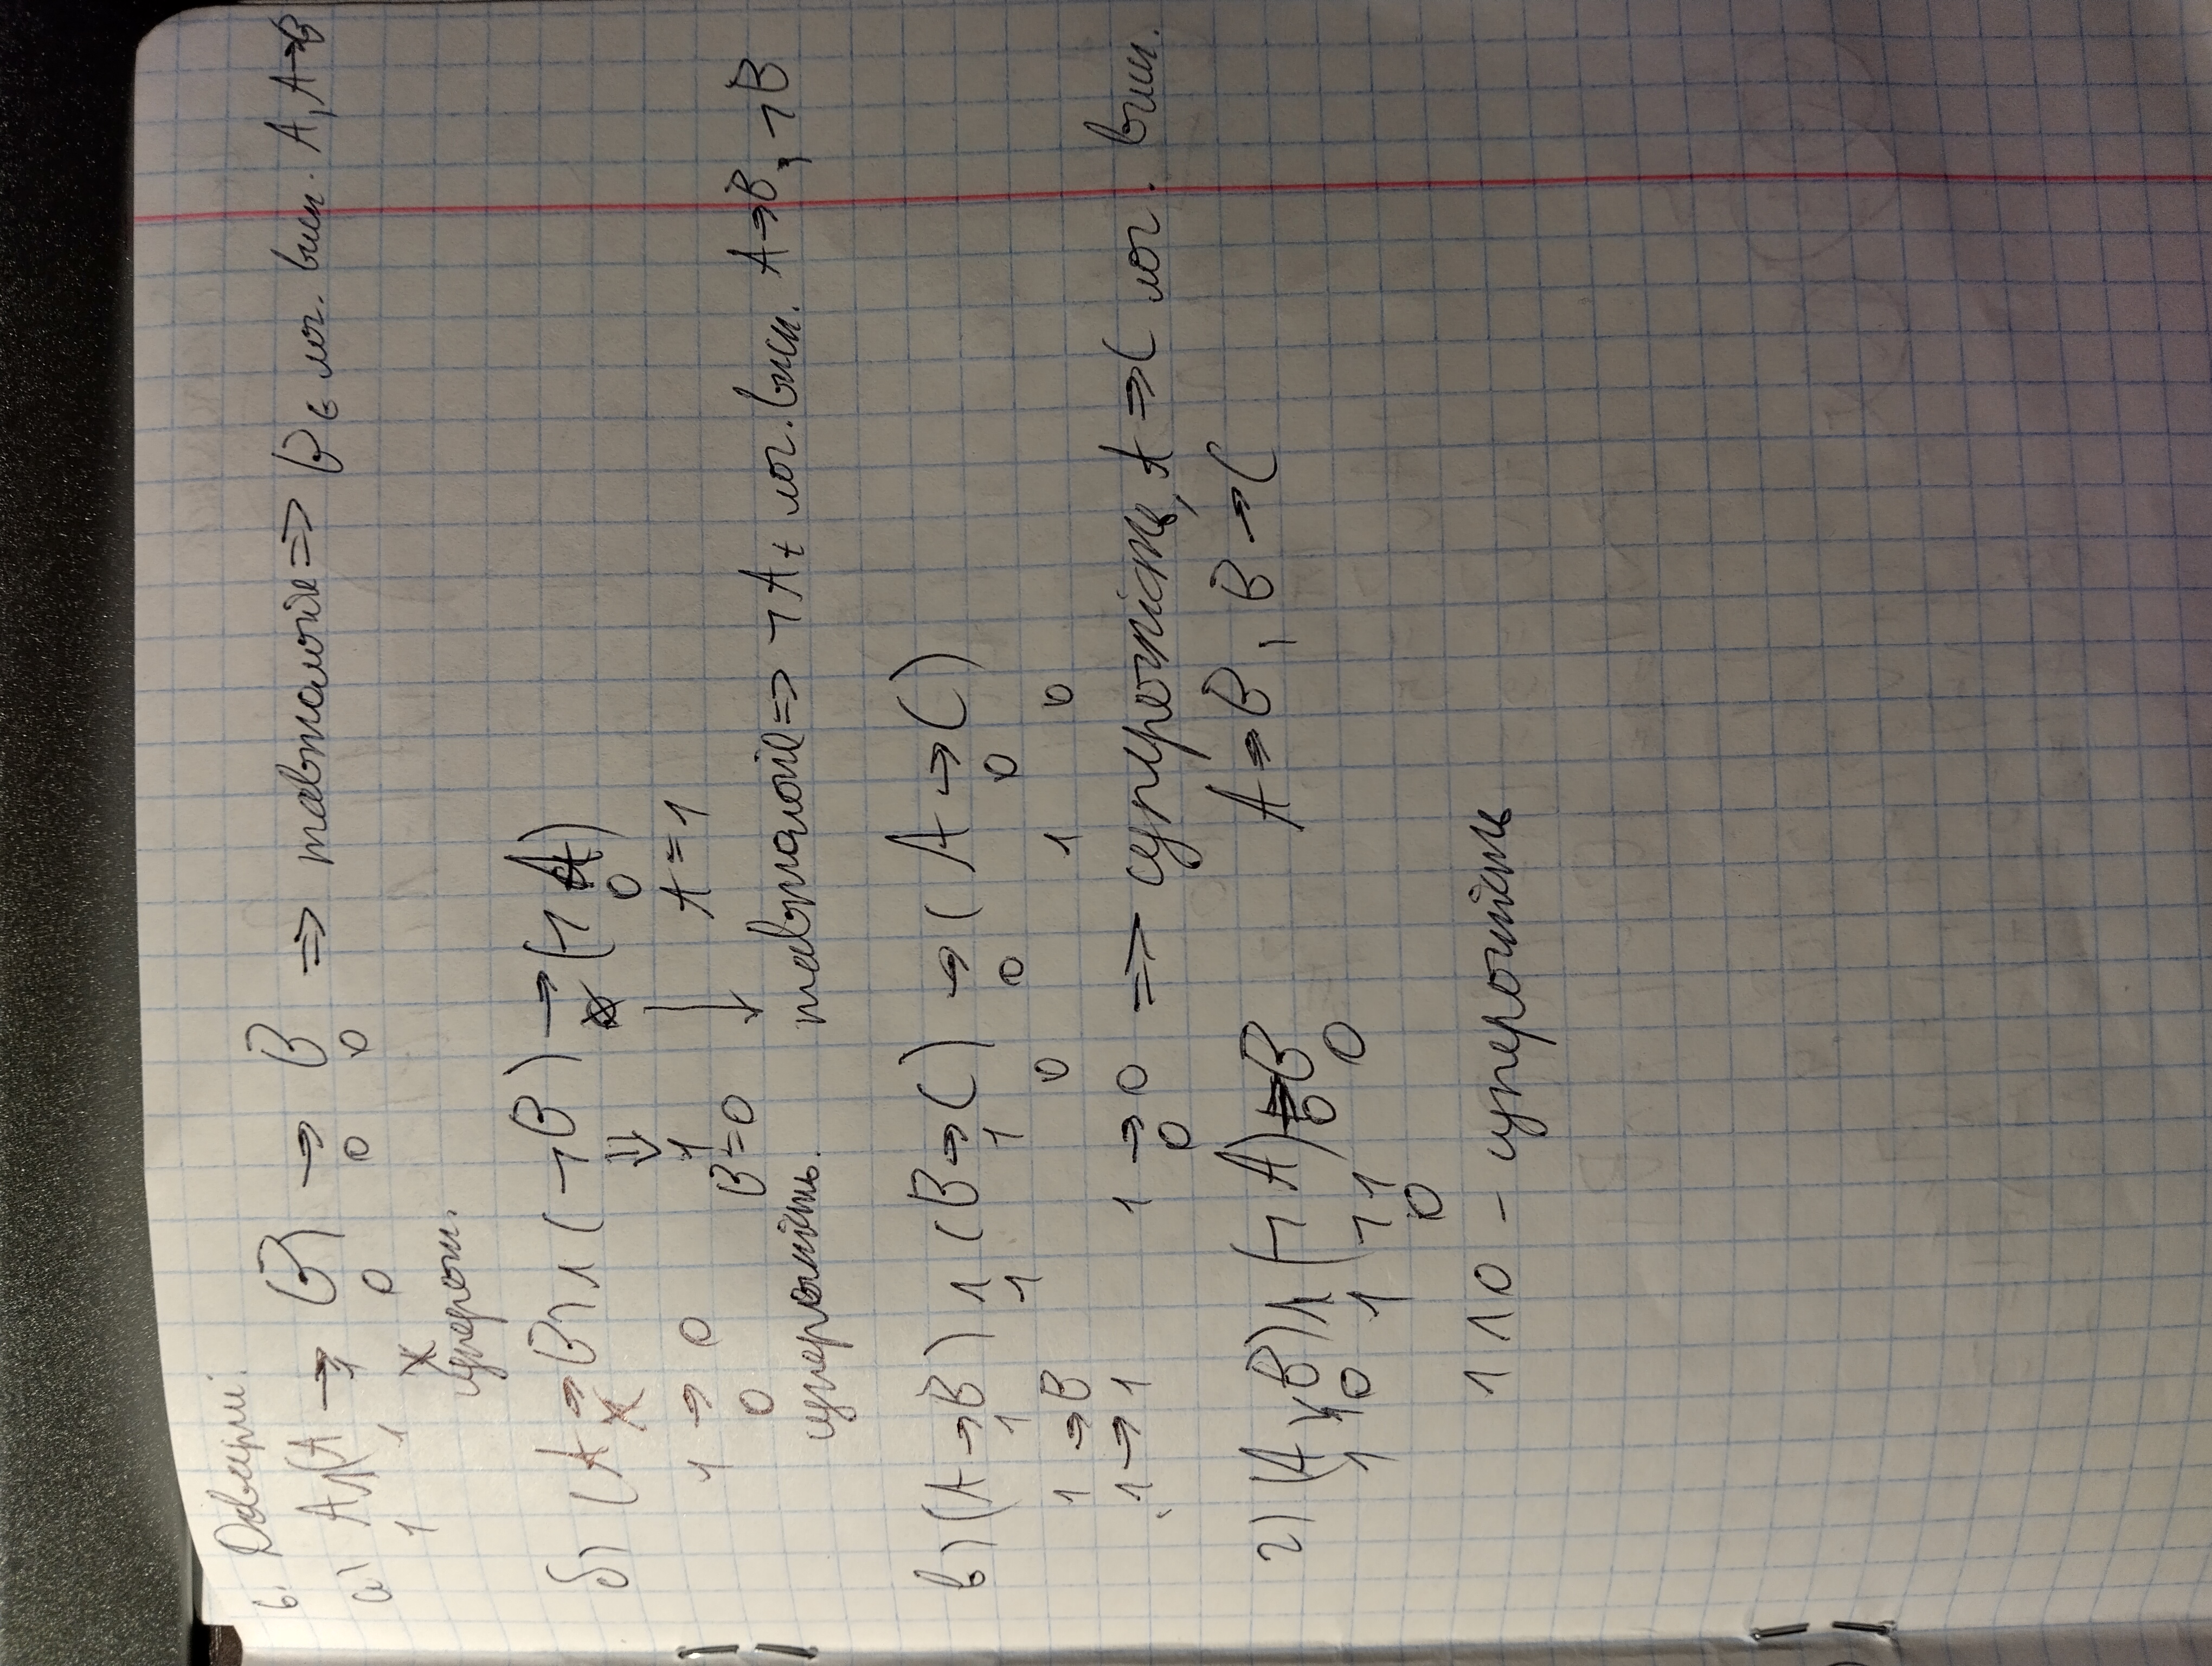 6. Довести:
а) A∧(A → B) → B ⇒ тавтологія ⇒ B є лог. висн. A, A→B
1 1 1 0 0 0
X
супереч.
б) (A → B) ∧ (¬B) → (¬A)
X ⇓ 0 0
1 → 0 1 A = 1
0 B = 0
суперечність. тавтологія ⇒ ¬A є лог. висн. A→B, ¬B
в) (A → B) ∧ (B → C) → (A → C)
1 1 1 0 0
1 → B 0 1 0
1 → 1 1 → 0 ⇒ суперечність, A → C лог. висн.
0
A → B, B → C
г) (A ∨ B) ∧ (¬A) → B
1 1 0 1 ¬1 0 0
0
1 1 0 – суперечність